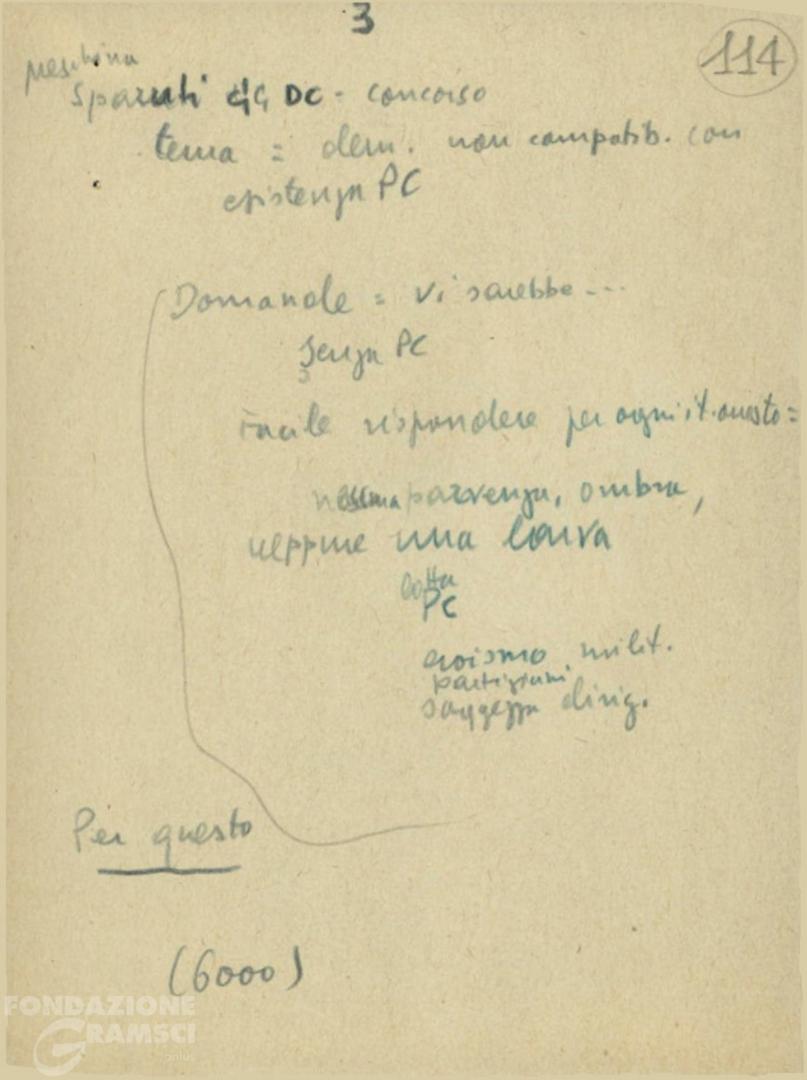 3
114
meschina
sparuti DC - concorso
tema = dem. non compatib. con
esistenza PC
Domande = vi sarebbe ...
senza PC
Facile rispondere per ogni it. onesto =
nessuna parvenza, ombra,
neppure una larva
lotta
PC
eroismo milit.
partigiani
saggezza dirig.
Per questo
(6000)
FONDAZIONE
GRAMSCI
onlus